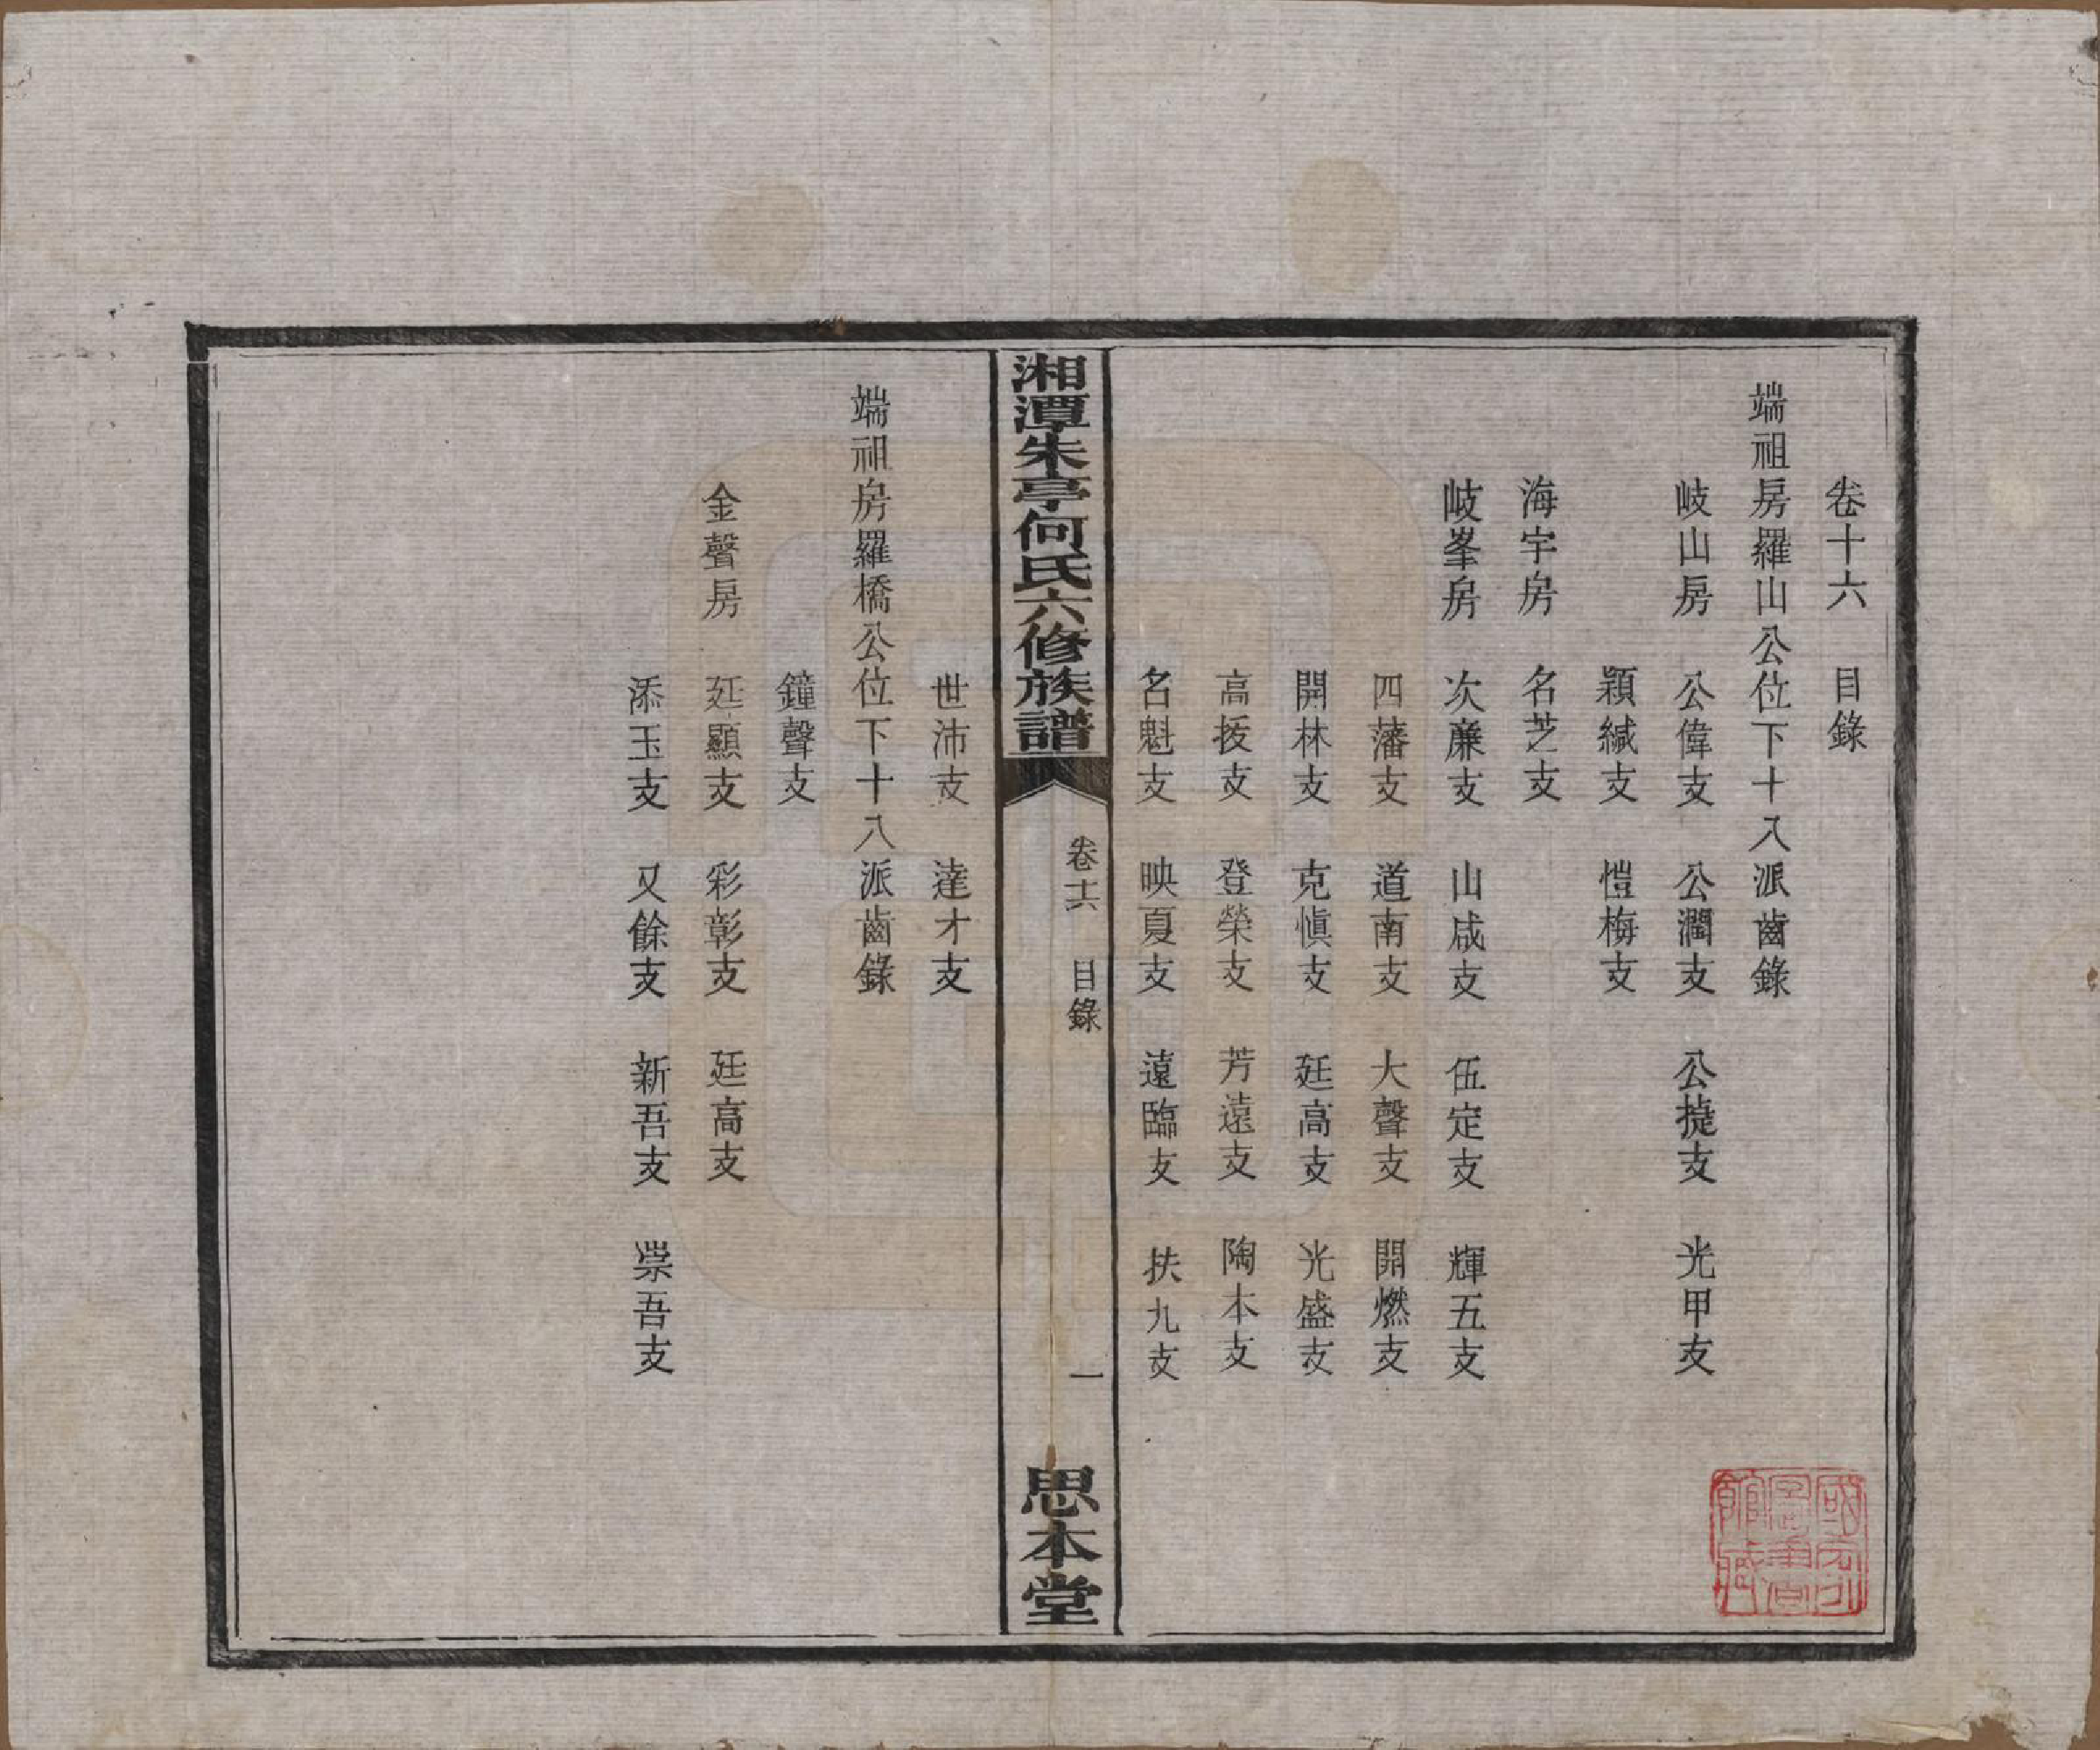 卷十六　目錄
端祖房羅山公位下十八派齒錄
岐山房　公偉支　公潤支　公㨗支　光甲支
穎緘支　愷梅支
海宇房　名芝支
岐峯房　次廉支　山咸支　伍定支　輝五支
四藩支　道南支　大聲支　開燃支
開林支　克愼支　廷高支　光盛支
高拔支　登榮支　芳遠支　陶本支
名魁支　映夏支　遠臨支　扶九支
湘潭朱亭何氏六修族譜　卷十六　目錄　一　思本堂
世沛支　達才支
端祖房羅橋公位下十八派齒錄
鐘聲支
金聲房　廷顯支　彩彰支　廷高支
添玉支　又餘支　新吾支　崇吾支
國立圖書館藏